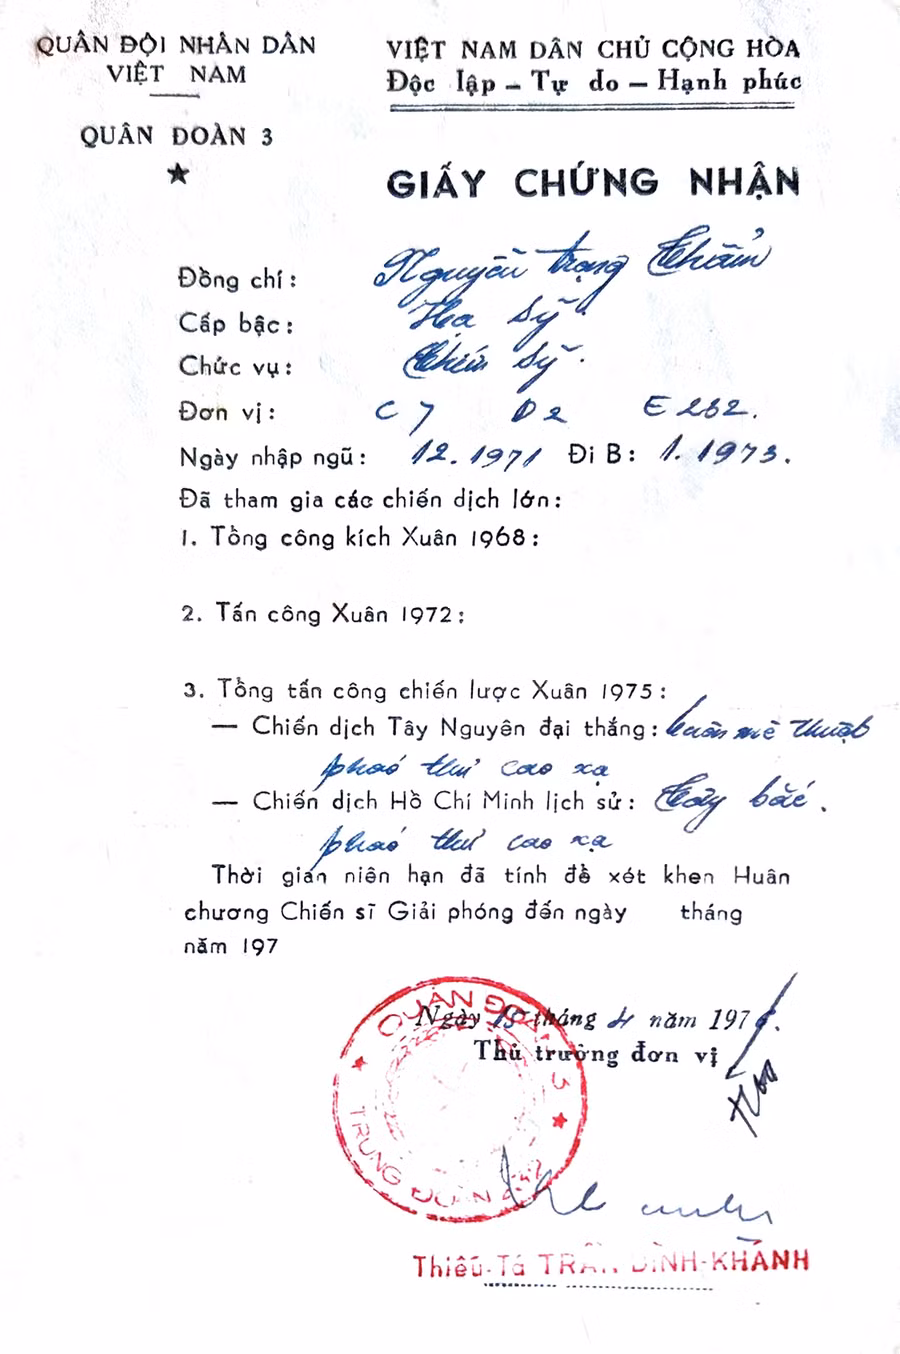 QUÂN ĐỘI NHÂN DÂN
VIỆT NAM
QUÂN ĐOÀN 3
VIỆT NAM DÂN CHỦ CỘNG HÒA
Độc lập – Tự do – Hạnh phúc
GIẤY CHỨNG NHẬN
Đồng chí: Nguyễn trọng Thẩm
Cấp bậc: Hạ sỹ.
Chức vụ: Chiến sỹ.
Đơn vị: C 7 D2 E 232.
Ngày nhập ngũ: 12.1971 Đi B: 1.1973.
Đã tham gia các chiến dịch lớn:
1. Tổng công kích Xuân 1968:
2. Tấn công Xuân 1972:
3. Tổng tấn công chiến lược Xuân 1975:
— Chiến dịch Tây Nguyên đại thắng: buôn mê thuột
pháo thủ cao xạ
— Chiến dịch Hồ Chí Minh lịch sử: Tây bắc.
pháo thủ cao xạ
Thời gian niên hạn đã tính để xét khen Huân
chương Chiến sĩ Giải phóng đến ngày tháng
năm 197
Ngày 15 tháng 4 năm 1976.
Thủ trưởng đơn vị
QUÂN ĐOÀN 3
TRUNG ĐOÀN 232
Thiếu-Tá TRẦN ĐÌNH-KHÁNH